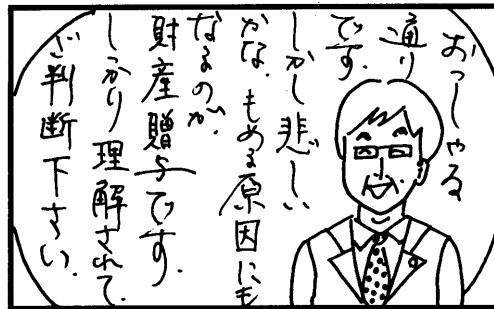 おっしゃる
通り
です.
しかし悲しい
かな.もめる原因にも
なるのが.
財産贈与です.
しかり理解されて.
ご判断下さい.